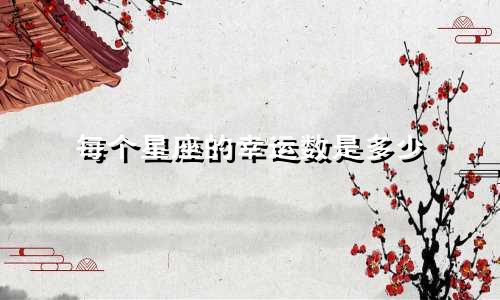 每个星座的幸运数是多少